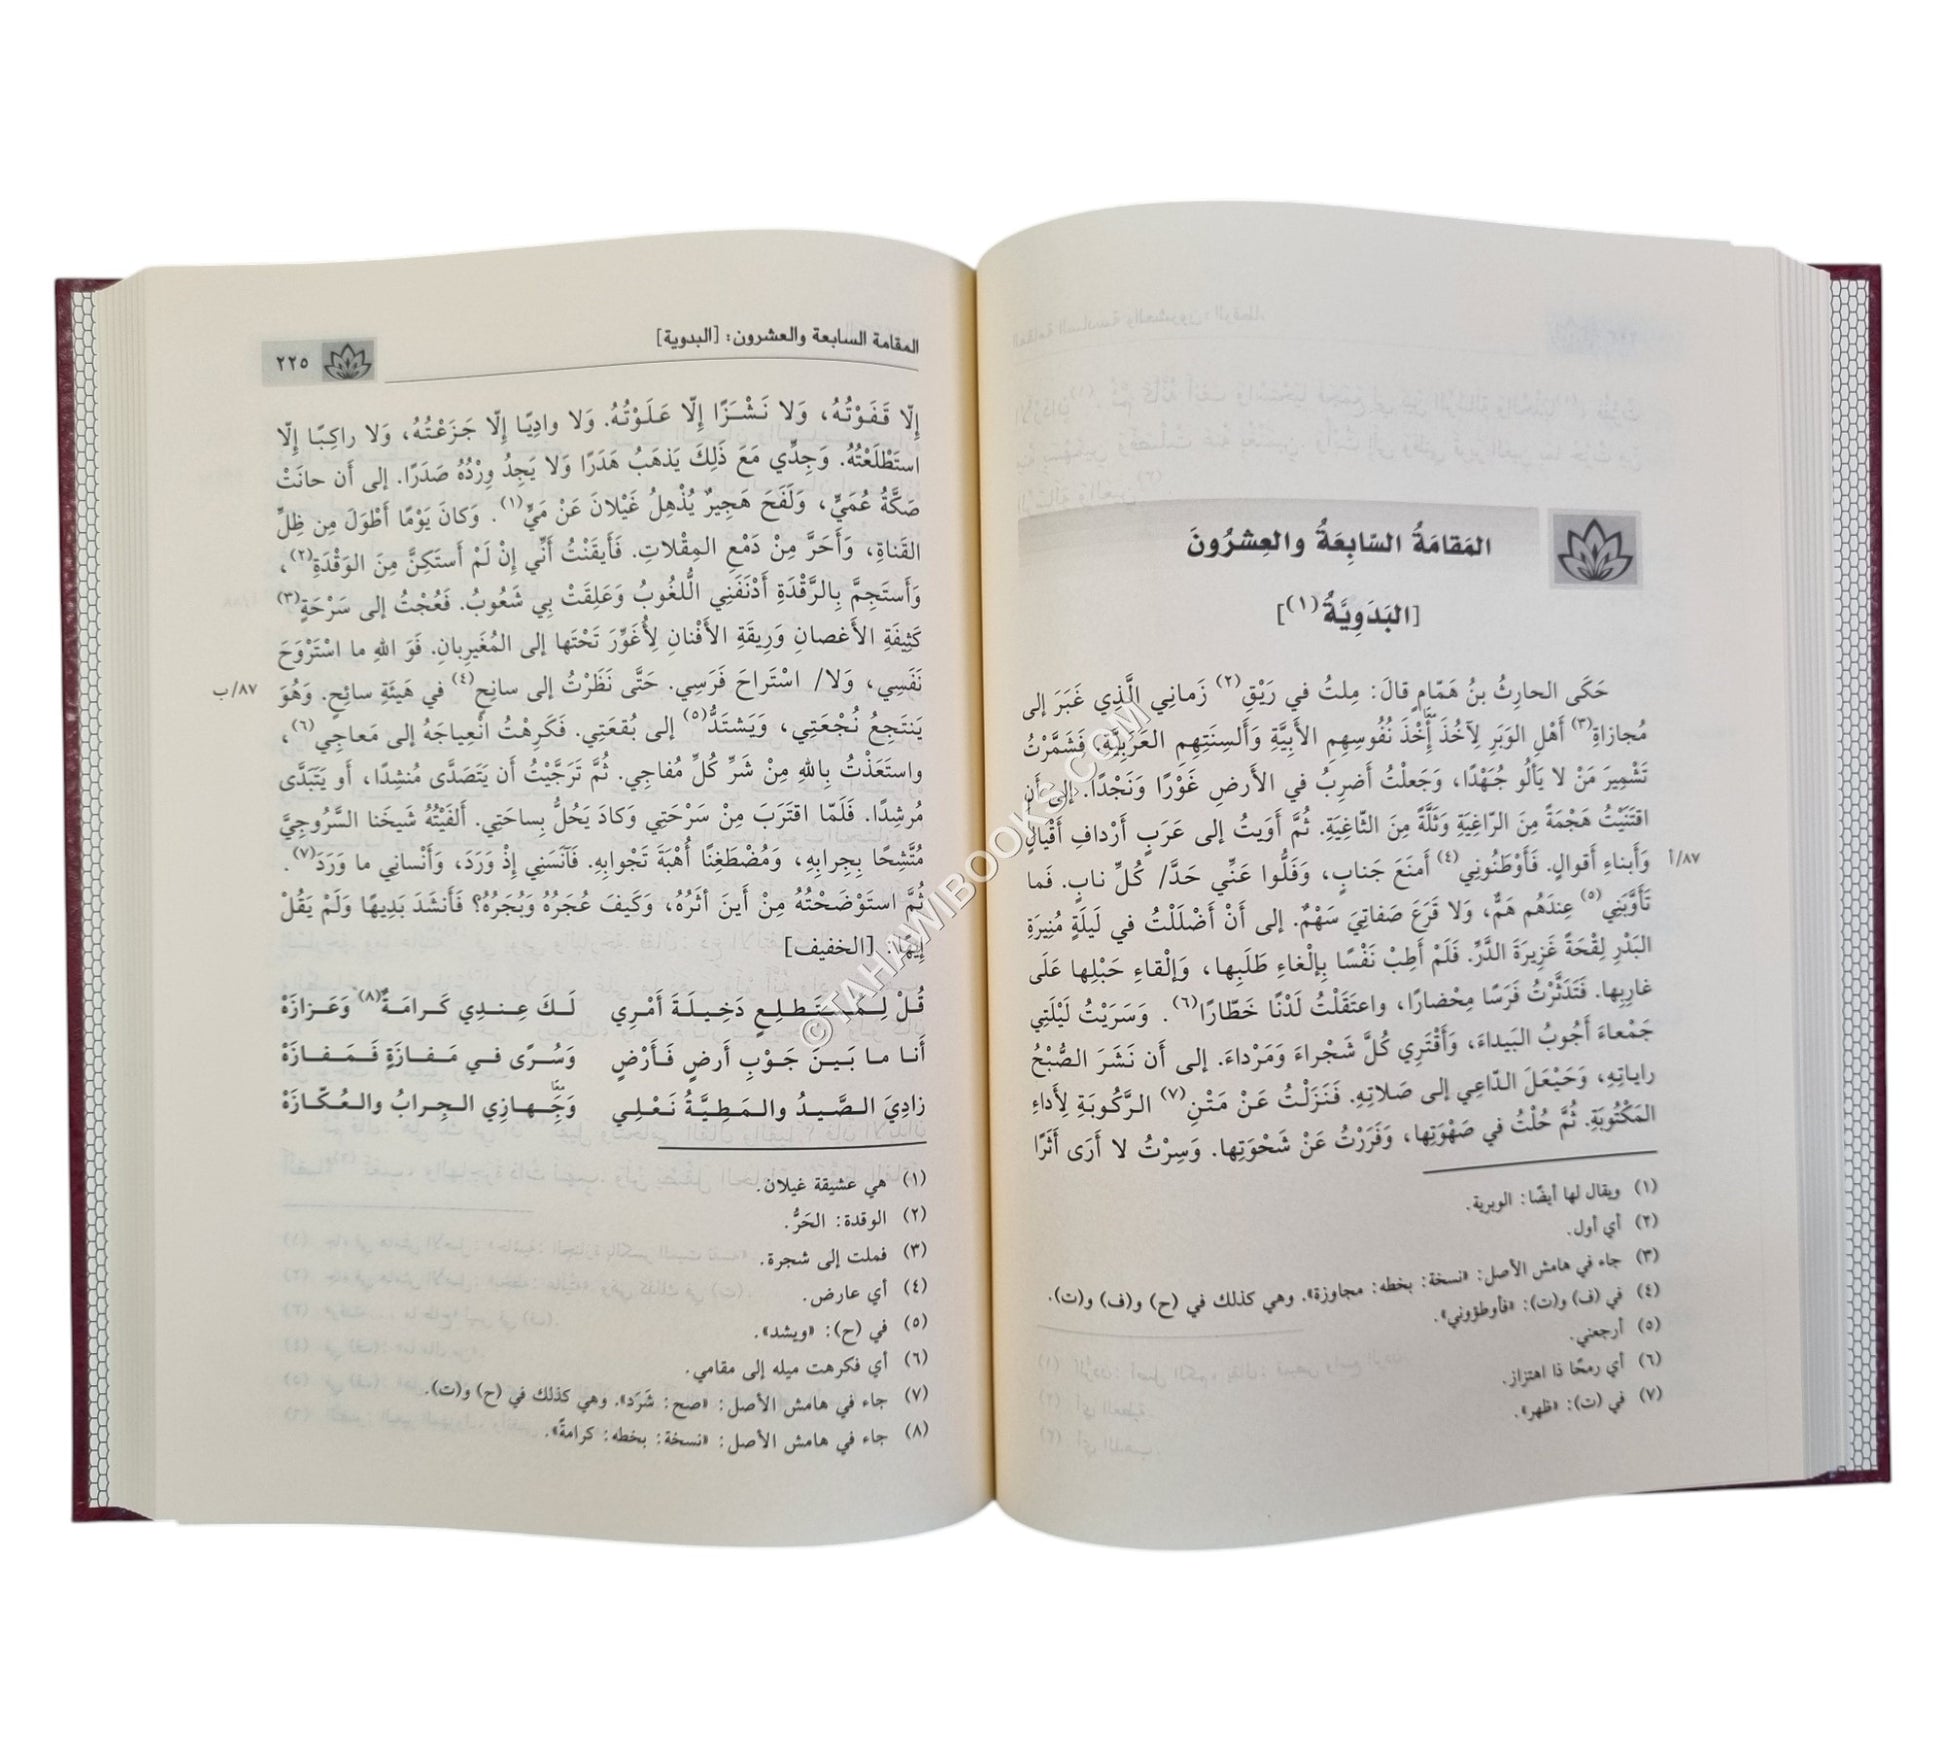 المَقامَةُ السّابِعَةُ والعِشرُونَ
[البَدَوِيَّةُ(١)]
حَكَى الحارِثُ بنُ هَمّامٍ قالَ: مِلتُ في رَيْقِ(٢) زَمانِي الَّذِي غَبَرَ إلى
مُجازاةِ(٣) أَهْلِ الوَبَرِ لِآخُذَ إِخْذَ نُفُوسِهِمِ الأَبِيَّةِ وَأَلسِنَتِهِمِ العَرَبِيَّةِ. فَشَمَّرْتُ
تَشْمِيرَ مَنْ لا يَألُو جُهْدًا، وَجَعلْتُ أَضرِبُ في الأَرضِ غَوْرًا وَنَجْدًا. إلى أَنِ
اقتَنَيْتُ هَجْمَةً مِنَ الرّاغِيَةِ وَثَلَّةً مِنَ الثّاغِيَةِ. ثُمَّ أَوَيتُ إلى عَرَبٍ أَرْدافِ أَقْيالٍ
وَأَبناءِ أَقوالٍ. فَأَوْطَنُونِي(٤) أَمنَعَ جَنابٍ، وَفَلُّوا عَنِّي حَدَّ/ كُلِّ نابٍ. فَما
٨٧/أ
تَأَوَّبَنِي(٥) عِندَهُم هَمٌّ، وَلا قَرَعَ صَفاتِيَ سَهْمٌ. إلى أَنْ أَضْلَلْتُ في لَيلَةٍ مُنِيرَةِ
البَدْرِ لِقْحَةً غَزِيرَةَ الدَّرِّ. فَلَمْ أَطِبْ نَفْسًا بِإلْغاءِ طَلَبِها، وَإلْقاءِ حَبْلِها عَلَى
غارِبِها. فَتَدَثَّرْتُ فَرَسًا مِحْضارًا، واعتَقَلْتُ لَدْنًا خَطّارًا(٦). وَسَرَيْتُ لَيْلَتِي
جَمْعاءَ أَجُوبُ البَيداءَ، وَأَقْتَرِي كُلَّ شَجْراءَ وَمَرْداءَ. إلى أَن نَشَرَ الصُّبْحُ
راياتِهِ، وَحَيْعَلَ الدّاعِي إلى صَلاتِهِ. فَنَزَلْتُ عَنْ مَتْنِ(٧) الرَّكُوبَةِ لِأَداءِ
المَكْتُوبَةِ. ثُمَّ حُلْتُ في صَهْوَتِها، وَفَرَرْتُ عَنْ شَحْوَتِها. وَسِرْتُ لا أَرَى أَثَرًا
(١) ويقال لها أيضًا: الوبرية.
(٢) أي أول.
(٣) جاء في هامش الأصل: «نسخة: بخطه: مجاوزة». وهي كذلك في (ح) و(ف) و(ت).
(٤) في (ف) و(ت): «فأوطؤوني».
(٥) أرجعني.
(٦) أي رمحًا ذا اهتزاز.
(٧) في (ت): «ظهر».
المقامة السابعة والعشرون: [البدوية]
٢٢٥
إلّا قَفَوْتُهُ، وَلا نَشْزًا إلّا عَلَوْتُهُ. وَلا وادِيًا إلّا جَزَعْتُهُ، وَلا راكِبًا إلّا
استَطْلَعْتُهُ. وَجِدِّي مَعَ ذَلِكَ يَذهَبُ هَدَرًا وَلا يَجِدُ وِرْدُهُ صَدَرًا. إلى أَن حانَتْ
صَكَّةُ عُمَيٍّ، وَلَفَحَ هَجِيرٌ يُذْهِلُ غَيْلانَ عَنْ مَيٍّ(١). وَكانَ يَوْمًا أَطْوَلَ مِن ظِلِّ
القَناةِ، وَأَحَرَّ مِنْ دَمْعِ المِقْلاتِ. فَأَيقَنْتُ أَنِّي إنْ لَمْ أَستَكِنَّ مِنَ الوَقْدَةِ(٢)،
وَأَستَجِمَّ بِالرَّقْدَةِ أَدْنَفَنِي اللُّغُوبُ وَعَلِقَتْ بِي شَعُوبُ. فَعُجْتُ إلى سَرْحَةٍ(٣)
كَثِيفَةِ الأَغصانِ وَرِيقَةِ الأَفْنانِ لِأُغَوِّرَ تَحْتَها إلى المُغَيرِبانِ. فَوَ اللهِ ما اسْتَرْوَحَ
نَفَسِي، وَلا/ اسْتَراحَ فَرَسِي. حَتَّى نَظَرْتُ إلى سانِحٍ(٤) في هَيئَةِ سائِحٍ. وَهُوَ
٨٧/ب
يَنتَجِعُ نُجْعَتِي، وَيَشتَدُّ(٥) إلى بُقعَتِي. فَكَرِهْتُ انْعِياجَهُ إلى مَعاجِي(٦)،
واستَعَذْتُ بِاللهِ مِنْ شَرِّ كُلِّ مُفاجِي. ثُمَّ تَرَجَّيْتُ أَن يَتَصَدَّى مُنشِدًا، أَو يَتَبَدَّى
مُرشِدًا. فَلَمّا اقتَرَبَ مِنْ سَرْحَتِي وَكادَ يَحُلُّ بِساحَتِي. أَلفَيْتُهُ شَيخَنا السَّرُوجِيَّ
مُتَّشِحًا بِجِرابِهِ، وَمُضْطَغِنًا أُهْبَةَ تَجْوابِهِ. فَآنَسَنِي إذْ وَرَدَ، وَأَنْسانِي ما وَرَدَ(٧).
ثُمَّ استَوْضَحْتُهُ مِنْ أَينَ أَثَرُهُ، وَكَيفَ عُجَرُهُ وَبُجَرُهُ؟ فَأَنشَدَ بَدِيهًا وَلَمْ يَقُلْ
إيْهًا: [الخفيف]
قُلْ لِمُستَطلِعٍ دَخِيلَةَ أَمْرِي لَكَ عِندِي كَرامَةٌ(٨) وَعَزازَهْ
أَنا ما بَينَ جَوْبِ أَرضٍ فَأَرْضٍ وَسُرًى في مَفازَةٍ فَمَفازَهْ
زادِيَ الصَّيدُ والمَطِيَّةُ نَعْلِي وَجَهازِي الجِرابُ والعُكّازَهْ
(١) هي عشيقة غيلان.
(٢) الوقدة: الحَرُّ.
(٣) فملت إلى شجرة.
(٤) أي عارض.
(٥) في (ح): «ويشد».
(٦) أي فكرهت ميله إلى مقامي.
(٧) جاء في هامش الأصل: «صح: شَرَد». وهي كذلك في (ح) و(ت).
(٨) جاء في هامش الأصل: «نسخة: بخطه: كرامةً».
©TAHAWIBOOKS.COM